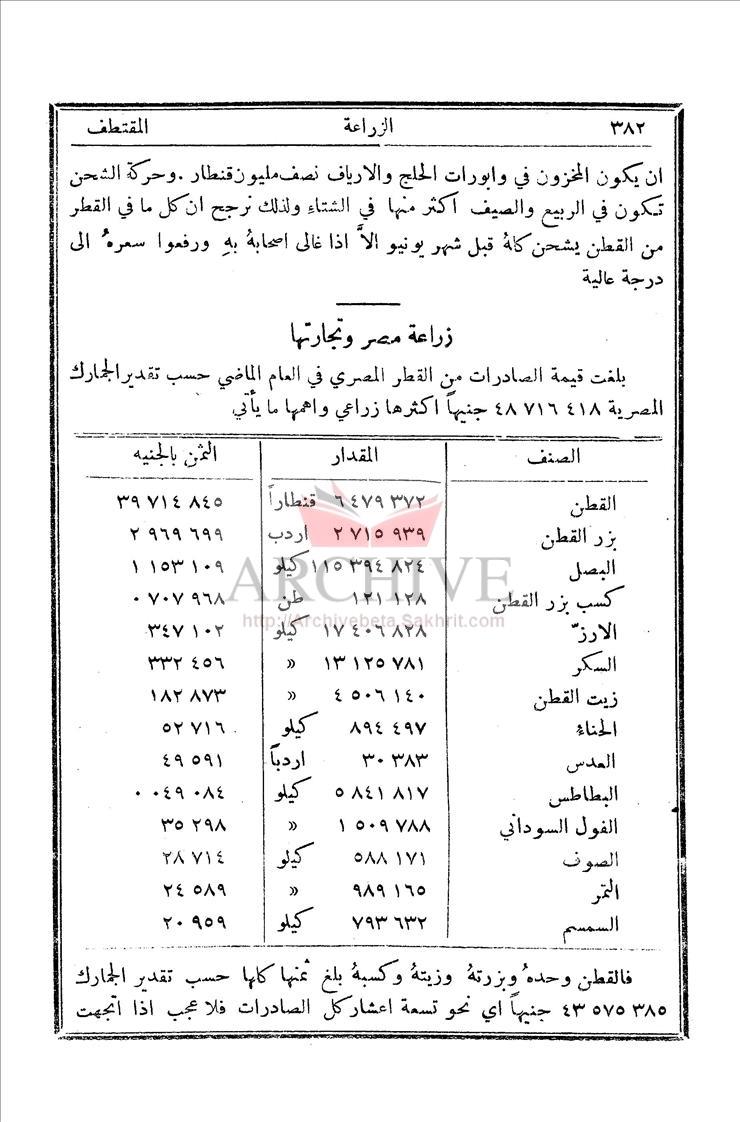 ٣٨٢ الزراعة المقتطف
ان يكون المخزون في وابورات الحلج والارياف نصف مليون قنطار . وحركة الشحن
تكون في الربيع والصيف اكثر منها في الشتاءِ ولذلك نرجح ان كل ما في القطر
من القطن يشحن كلهُ قبل شهر يونيو الاَّ اذا غالى اصحابهُ بهِ ورفعوا سعرهُ الى
درجة عالية
زراعة مصر وتجارتها
بلغت قيمة الصادرات من القطر المصري في العام الماضي حسب تقدير الجمارك
المصرية ٤١٨ ٧١٦ ٤٨ جنيهاً اكثرها زراعي واهمها ما يأتي
الصنف المقدار الثمن بالجنيه
القطن ٣٧٢ ٤٧٩ ٦ قنطاراً ٨٤٥ ٧١٤ ٣٩
بزر القطن ٩٣٩ ٧١٥ ٢ اردب ٦٩٩ ٩٦٩ ٢
البصل ٨٢٤ ٣٩٤ ١١٥ كيلو ١٠٩ ١٥٣ ١
كسب بزر القطن ١٢٨ ١٢١ طن ٩٦٨ ٧٠٧ ٠
الارزّ ٨٢٨ ٤٠٦ ١٧ كيلو ١٠٢ ٣٤٧
السكر ٧٨١ ١٢٥ ١٣ » ٤٥٦ ٣٣٢
زيت القطن ١٤٠ ٥٠٦ ٤ » ٨٧٣ ١٨٢
الحناءُ ٤٩٧ ٨٩٤ كيلو ٧١٦ ٥٢
العدس ٣٨٣ ٣٠ اردباً ٥٩١ ٤٩
البطاطس ٨١٧ ٨٤١ ٥ كيلو ٠٨٤ ٠٤٩ ٠
الفول السوداني ٧٨٨ ٥٠٩ ١ » ٢٩٨ ٣٥
الصوف ١٧١ ٥٨٨ كيلو ٧١٤ ٢٨
التمر ١٦٥ ٩٨٩ » ٥٨٩ ٢٤
السمسم ٦٣٢ ٧٩٣ كيلو ٩٥٩ ٢٠
فالقطن وحدهُ وبزرتهُ وزيتهُ وكسبهُ بلغ ثمنها كلها حسب تقدير الجمارك
٣٨٥ ٥٧٥ ٤٣ جنيهاً اي نحو تسعة اعشار كل الصادرات فلا عجب اذا اتجهت
ARCHIVE
http://Archivebeta.Sakhrit.com